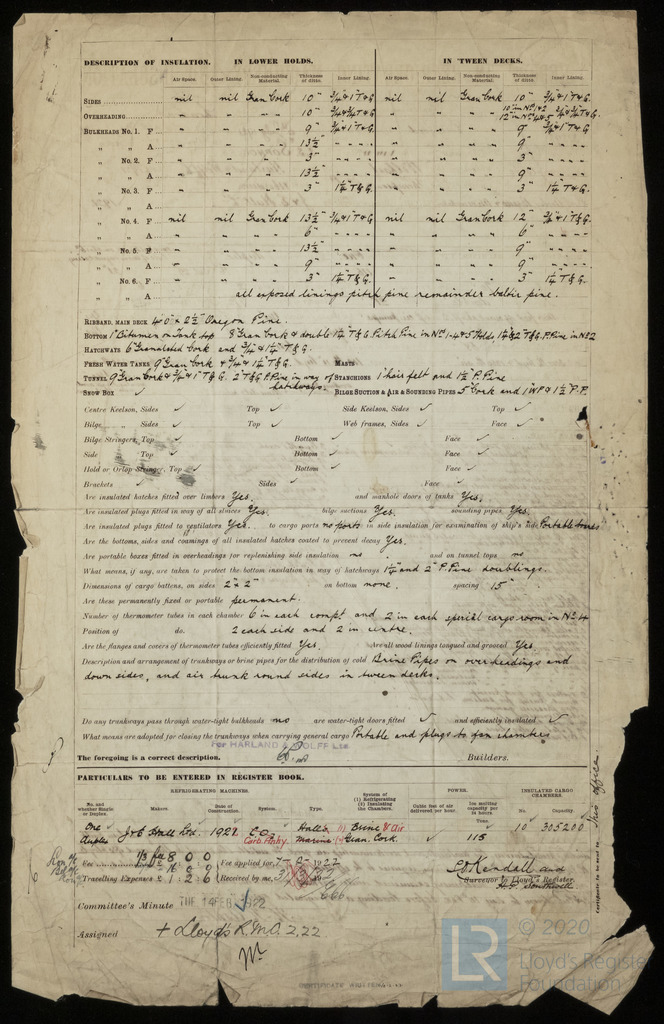 DESCRIPTION OF INSULATION. IN LOWER HOLDS. IN 'TWEEN DECKS.
Air Space. Outer Lining. Non-conducting Material. Thickness of ditto. Inner Lining. Air Space. Outer Lining. Non-conducting Material. Thickness of ditto. Inner Lining.
SIDES nil nil Gran Cork 10" 3/4" & 1" T & G. nil nil Gran Cork 10" 3/4" & 1" T & G.
OVERHEADING " " " 10" 3/4 & 3/4 T & G. " " " 10" in No 1 & 2 12" in No 4 & 5 3/4 & 3/4 T & G.
BULKHEADS No. 1. F " " " 9" 3/4 & 1" T & G. " " " 9" 3/4 & 1" T & G.
" " A " " " 13½" " " " " " " " 9" " " " "
" No. 2. F " " " 3" " " " " " " " 3" " " " "
" " A " " " 13½" " " " " " " " 9" " " " "
" No. 3. F " " " 3" 1¼ T & G. " " " 3" 1¼ T & G.
" " A
" No. 4. F nil nil Gran Cork 13½" 3/4 & 1 T & G. nil nil Gran Cork 12" 3/4 & 1 T & G.
" " A " " " 6" " " " " " " " 6" " " " "
" No. 5. F " " " 13½" " " " " " " " 9" " " " "
" " A " " " 9" " " " " " " " 9" " " " "
" No. 6. F " " " 3" 1¼ T & G. " " " 3" 1¼ T & G.
" " A all exposed linings pitch pine remainder baltic pine.
RIBBAND, MAIN DECK 40" × 2½" Oregon Pine.
BOTTOM 1" Bitumen on Tank top 8" Gran Cork & double 1¼ T & G. Pitch Pine in No 1-4 & 5 Holds, 1¼ & 2 T & G. P. Pine in No 2
HATCHWAYS 6" Granulated Cork and 3/4 & 1¼" T & G.
FRESH WATER TANKS 9" Gran Cork & 3/4 & 1" T & G. MASTS
TUNNEL 9" Gran Cork & 3/4 & 1" T & G. 2" T & G. P. Pine in way of hatchways. STANCHIONS 1" hair felt and 1½" P. Pine
SNOW BOX ✓ BILGE SUCTION & AIR & SOUNDING PIPES 5" Cork and 1" W P & 1½" P. P.
Centre Keelson, Sides ✓ Top ✓ Side Keelson, Sides ✓ Top ✓
Bilge " Sides ✓ Top ✓ Web frames, Sides ✓ Face ✓
Bilge Stringers, Top ✓ Bottom ✓ Face ✓
Side " Top ✓ Bottom ✓ Face ✓
Hold or Orlop Stringer, Top ✓ Bottom ✓ Face ✓
Brackets ✓ Sides ✓ Face ✓
Are insulated hatches fitted over limbers Yes. and manhole doors of tanks Yes.
Are insulated plugs fitted in way of all sluices Yes. bilge suctions Yes. sounding pipes Yes.
Are insulated plugs fitted to ventilators Yes. to cargo ports no ports in side insulation for examination of ship's side Portable boards
Are the bottoms, sides and coamings of all insulated hatches coated to prevent decay Yes.
Are portable boxes fitted in overheadings for replenishing side insulation no and on tunnel tops no
What means, if any, are taken to protect the bottom insulation in way of hatchways 1¼" and 2" P. Pine doublings.
Dimensions of cargo battens, on sides 2" × 2" on bottom none. spacing 15"
Are these permanently fixed or portable permanent.
Number of thermometer tubes in each chamber 6 in each compt. and 2 in each special cargo room in No 4
Position of do. 2 each side and 2 in centre.
Are the flanges and covers of thermometer tubes efficiently fitted Yes. Are all wood linings tongued and grooved Yes.
Description and arrangement of trunkways or brine pipes for the distribution of cold Brine Pipes on overheadings and
down sides, and air trunk round sides in tween decks.
Do any trunkways pass through water-tight bulkheads no are water-tight doors fitted ✓ and efficiently insulated ✓
What means are adopted for closing the trunkways when carrying general cargo Portable and plugs to fan chambers
FOR HARLAND & WOLFF LTD.
The foregoing is a correct description. Builders.
PARTICULARS TO BE ENTERED IN REGISTER BOOK.
REFRIGERATING MACHINES. System of (1) Refrigerating (2) Insulating the Chambers. POWER. INSULATED CARGO CHAMBERS.
No. and whether Single or Duplex. Makers. Date of Construction. System. Type. Cubic feet of air delivered per hour. Ice melting capacity per 24 hours. Tons. No. Capacity.
One J & E Hall Ltd. 1921. CO2 Hall's (1) Brine & Air 10 305200
duplex Carb. Anhy. Marine (2) Gran. Cork. ✓ 115
Fee Fee applied for, 1922
Travelling Expenses £ 1 : 2 : 6 Received by me,
L. Kendall and
Surveyor to Lloyd's Register.
Committee's Minute TUE 14 FEB 1922
Assigned + Lloyd's R.M.C. 2,22
Certificate to be sent to this office.
© 2020
LR Lloyd's Register
Foundation
CERTIFICATE WRITTEN